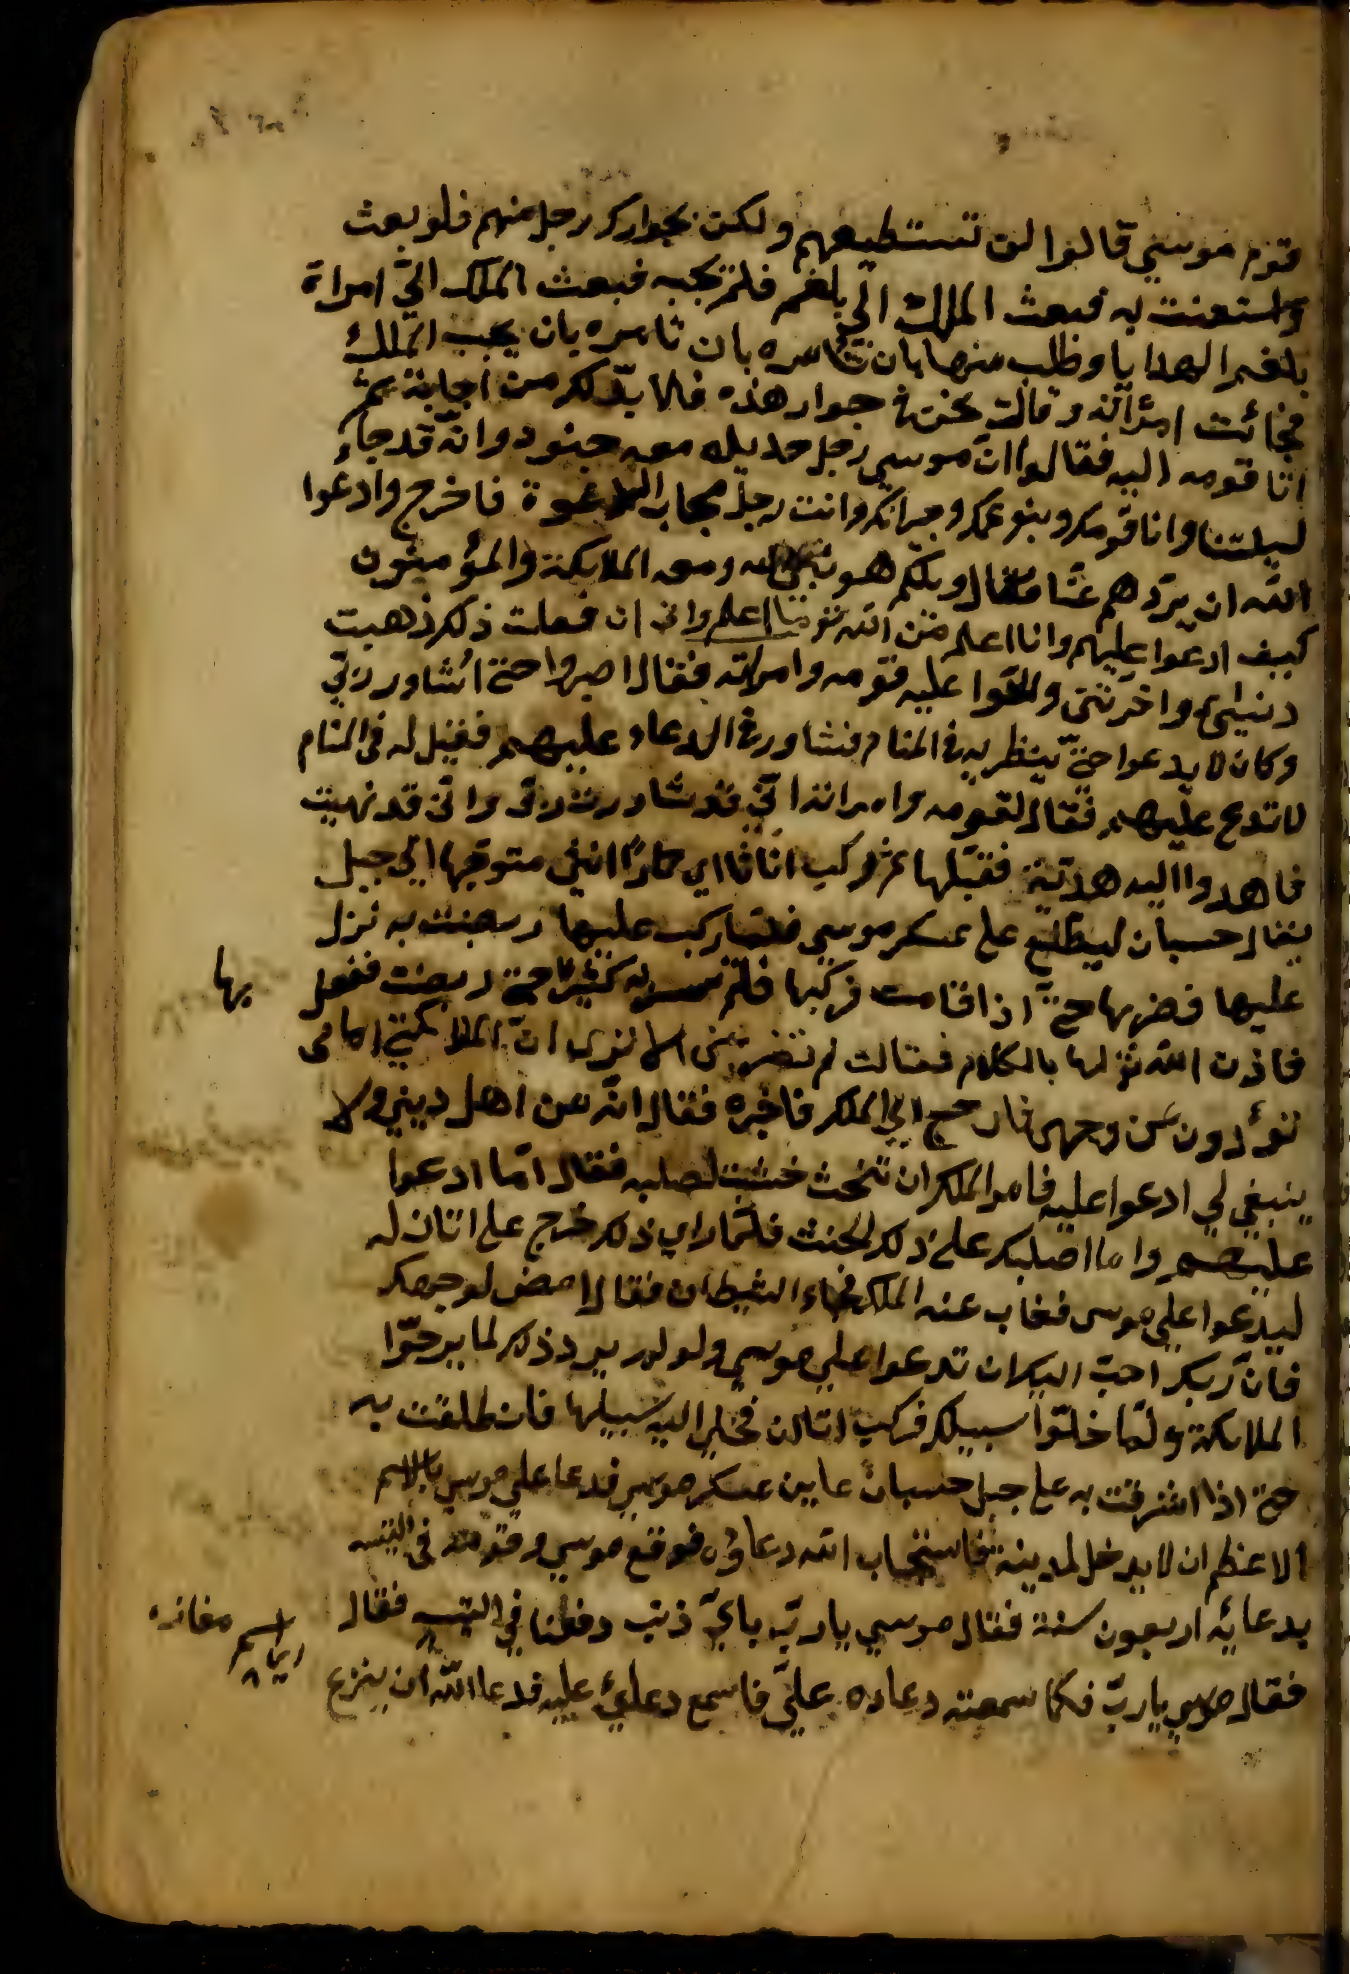 قوم موسي قالوا لن تستطيعهم ولكن بجوارك رجل منهم فلو بعث
واستعنت به فبعث الملك الي بلعم فلم يجبه فبعث الملك الي امراة
بلعم الهدايا وطلب منها بان تامره بان يجيب الملك
فجائت امرأته وقالت نحن في جوار هذه فلا بد لك من اجابته ثم
اتا قومه اليه فقالوا ان موسي رجل حديد معه جنود وانه قد جاء
ليلتنا وانا قومك وبنو عمك وجيرانك وانت رجل مجاب الدعوة فاخرج وادعوا
الله ان يردهم عنا فقال ويلكم هو نبي الله ومعه الملائكة والمؤمنون
كيف ادعوا عليهم وانا اعلم من الله تع ما اعلم واني ان فعلت ذلك ذهبت
دنيائي واخرتي والحوا عليه قومه وامراته فقال اصبروا حتي اشاور ربي
وكان لا يدعوا حتي ينظر به في المنام فشاور في الدعاء عليهم فقيل له في المنام
لا تدع عليهم فقال لقومه وامراته اني قد شاورت ربي واني قد نهيت
فاهدوا اليه هدية فقبلها ثم ركب اتانا اي حمارا انثي متوجها الي جبل
يقال حسبان ليطلع علي عسكر موسي فلما ركب عليها ربضت به نزل
عليها فضربها حتي اذا قامت فركبها فلم تسر به كثيرا حتي ربضت ففعل بها
فاذن الله تع لها بالكلام فقالت لم تضربني الا تري ان الملائكة امامي
تؤدون عن وجهي فارجع الي الملك فاخبره فقال انه من اهل ديني ولا
ينبغي لي ادعوا عليه فامر الملك ان تنحث خشبت لصلبه فقال اما ادعوا
عليهم واما اصلبك علي ذلك الخشب فلما راي ذلك خرج علي اتان له
ليدعوا علي موسي فغاب عنه الملك فجاء الشيطان فقال امض لوجهك
فان ربك احب اليك ان تدعوا علي موسي ولو لم يرد ذلك لما برحوا
الملائكة ولما خلوا سبيلك فركب اتان فخلي اليه سبيلها فانطلقت به
حتي اذا اشرفت به علي جبل حسبان عاين عسكر موسي فدعا علي موسي بالاسم
الاعظم ان لا يدخل المدينة فاستجاب الله دعاؤه فوقع موسي وقومه في التيه
بدعائه اربعون سنة فقال موسي يا رب باي ذنب وقعنا في التيه فقال
فقال موسي يا رب فكما سمعت دعاءه علي فاسمع دعائي عليه فدعا الله ان ينزع